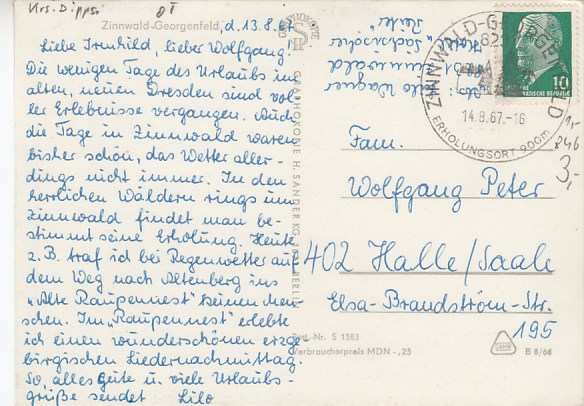 Krs. Dippsw.
ÖT
Zinnwald-Georgenfeld, d. 13.8.67
Liebe Irmhild, lieber Wolfgang!
Die wenigen Tage des Urlaubs im
alten, neuen Dresden sind vol-
ler Erlebnisse vergangen. Auch
die Tage in Zinnwald waren
bisher schön, das Wetter aller-
dings nicht immer. In den
herrlichen Wäldern rings um
Zinnwald findet man be-
stimmt seine Erholung. Heute
z. B. traf ich bei Regenwetter auf
dem Weg nach Altenberg ins
„Alte Raupennest" keinen Men-
schen. Im „Raupennest" erlebte
ich einen wunderschönen erzge-
birgischen Liedernachmittag.
So, alles Gute u. viele Urlaubs-
grüße sendet Lilo
GRAPHOKOPIE H. SANDER KG, BERLIN
Wagner
Zinnwald
Sächsischer
Reiter"
ZINNWALD-GEORGENFELD
14.8.67.-16
ERHOLUNGSORT 900m
10
DEMOKRATISCHE REPUBLIK
3,-
Fam.
Wolfgang Peter
402 Halle/Saale
Elsa-Brandström-Str.
195
Best.-Nr. S 1583
Verbraucherpreis MDN -,25
B 8/66